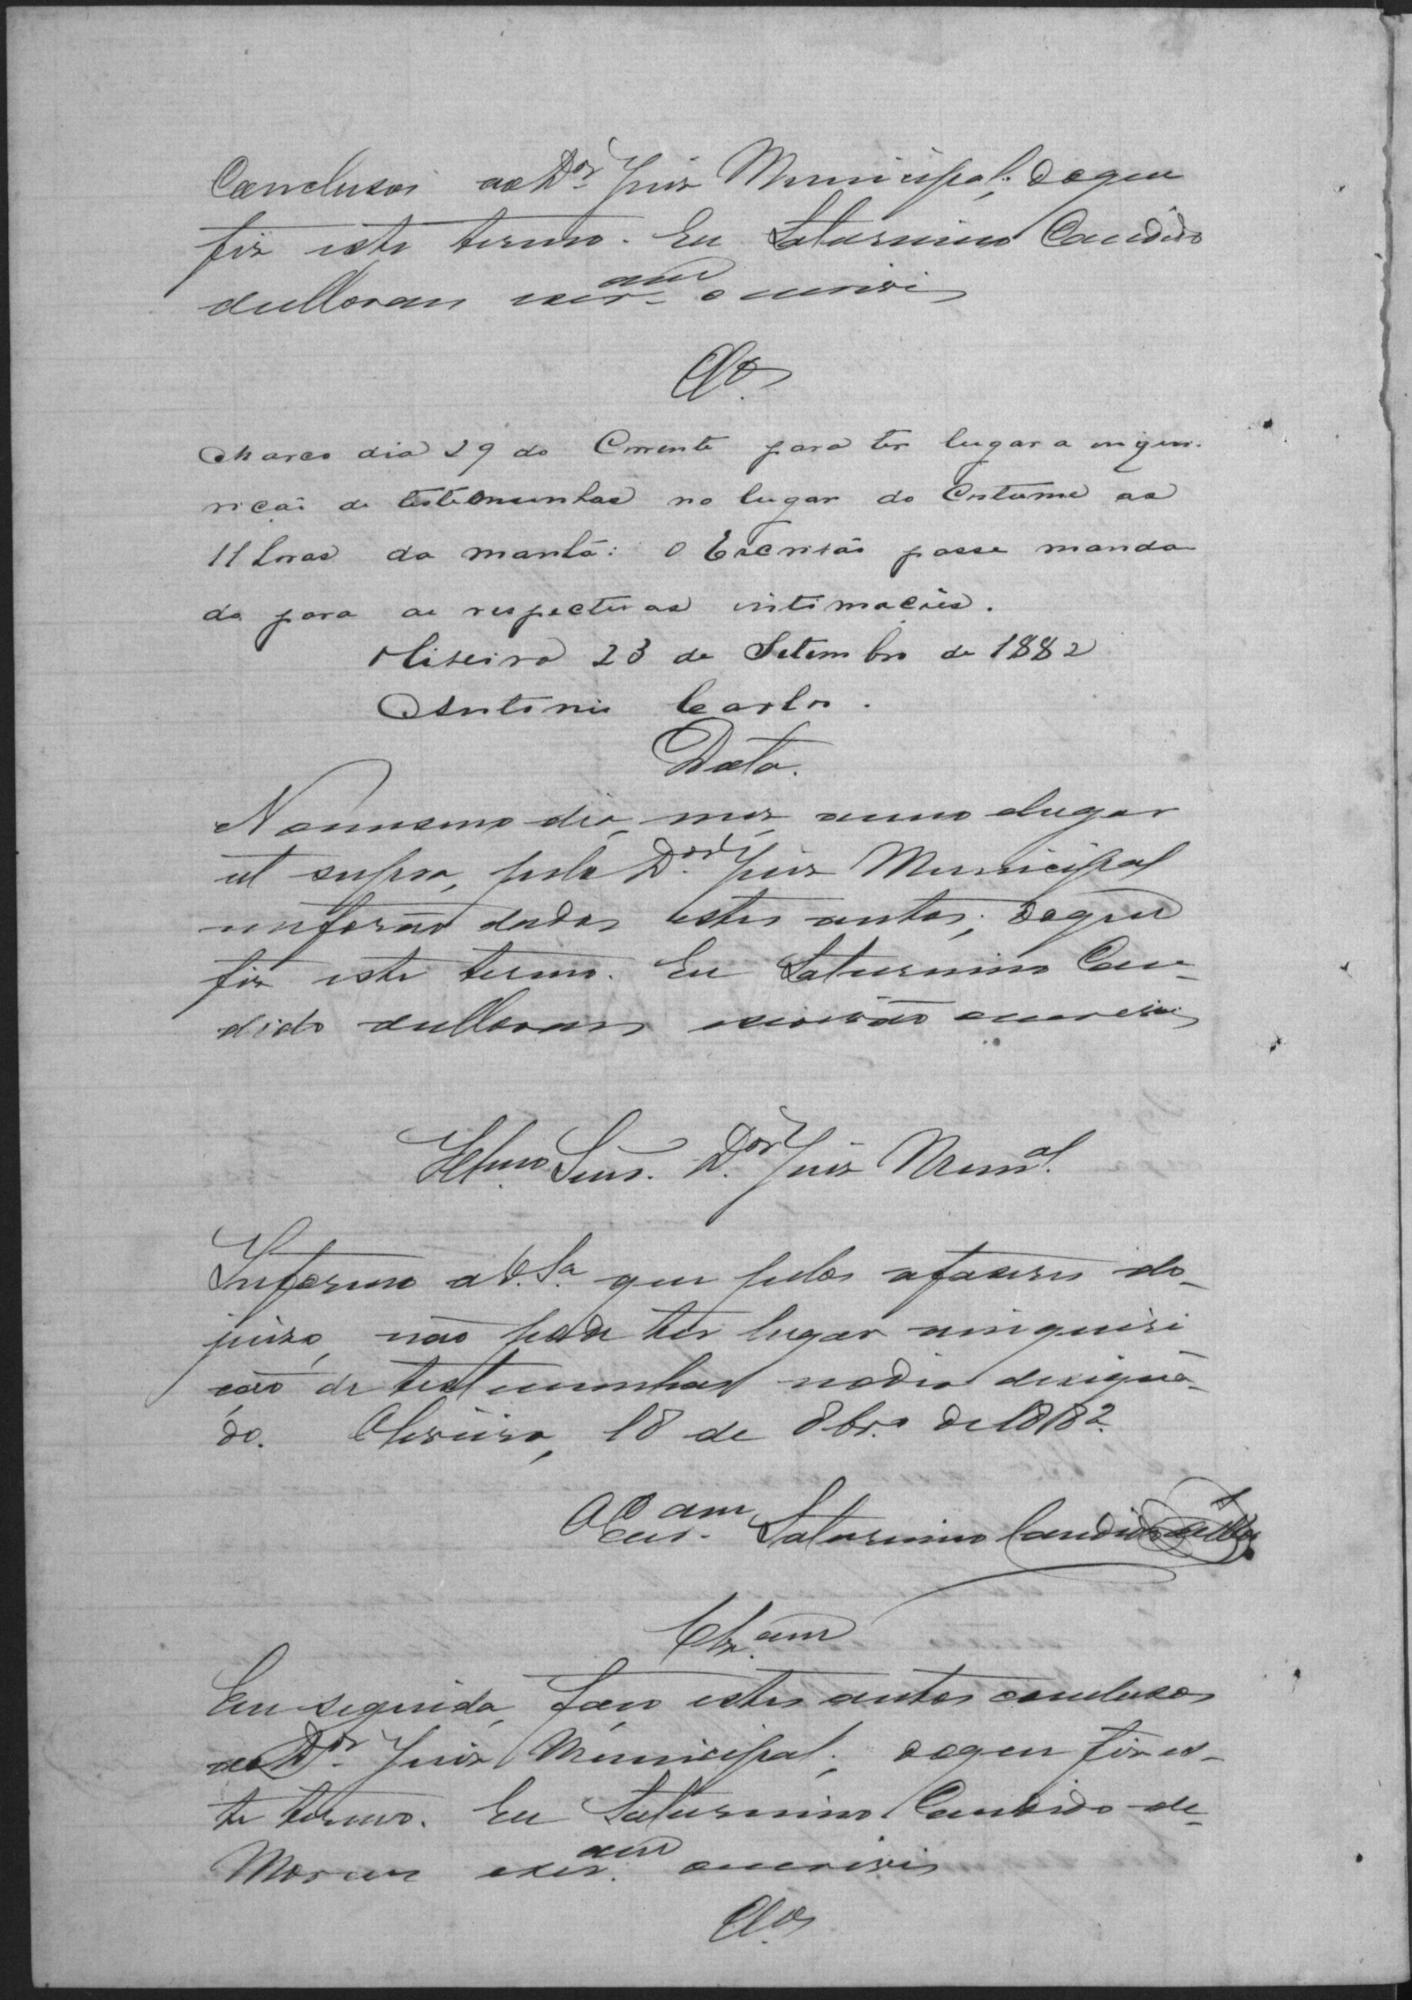 Conclusos ao Dor. Juiz Municipal; do que
fiz este termo. Eu Saturnino Candido
de Moraes escram. o escrevi
Clos.
Marco dia 29 do Corrente para ter lugar a inqui-
rição de testemunhas no lugar do Costume as
11 horas da manhã: O Escrivão passe manda
do para as respectivas intimações.
Oliveira 23 de Setembro de 1882
Antonio Carlos.
Data.
No mesmo dia, mez, anno e lugar
ut supra, pelo Dor. Juiz Municipal
me forão dados estes autos; do que
fiz este termo. Eu Saturnino Can-
dido de Moraes escrivão o escrevi
Illmo. Senr. Dor. Juiz Munal.
Informo a V. Sa. que pelos afaseres do
juizo, não pode ter lugar a inquiri
ção de testemunhas no dia designa-
do. Oliveira, 18 de 8bro. de 1882.
O Escram. Saturnino Candido de Mor.
Clzam
Em seguida, faço estes autos conclusos
ao Dor. Juiz Municipal; do que fiz es-
te termo. Eu Saturnino Candido de
Moraes escram. o escrevi
Clos